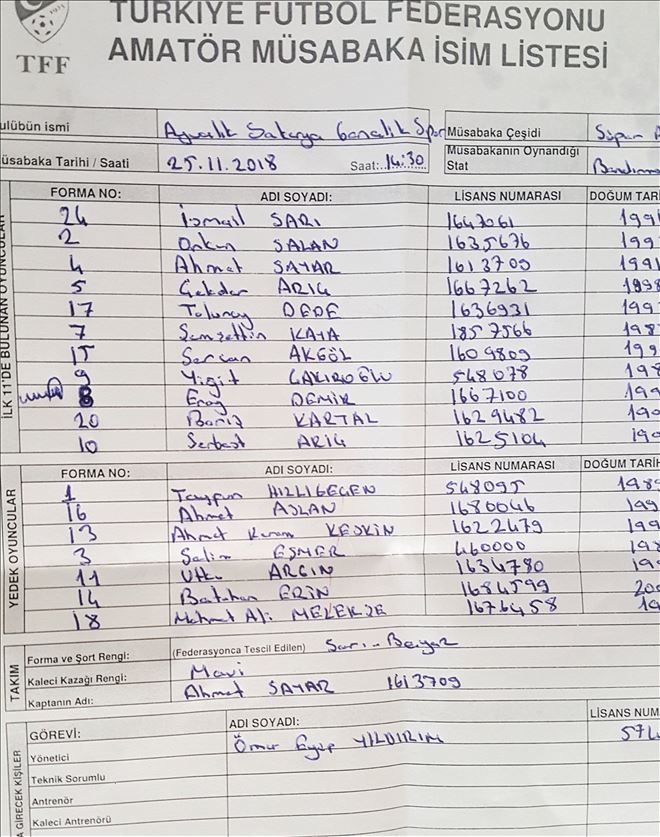 TFF
TÜRKİYE FUTBOL FEDERASYONU
AMATÖR MÜSABAKA İSİM LİSTESİ
ulübün ismi Ayvalık Sakarya Genclik Spor Müsabaka Çeşidi Süper A
üsabaka Tarihi / Saati 25.11.2018 Saat: 14:30 Müsabakanın Oynandığı Stat Bandırma
İLK 11'DE BULUNAN OYUNCULAR
FORMA NO: ADI SOYADI: LİSANS NUMARASI DOĞUM TARİ
24 İsmail SARI 1647061 1991
2 Orkun SALAN 1635676 199
4 Ahmet SAYAR 1613709 1991
5 ARIG 1667262 1998
17 Tolunay DEDE 1636931 199
7 Şemsettin KAYA 1857566 198
15 Sercan AKGÖL 1609809 199
9 Yiğit ÇAKIROĞLU 548078 199
8 Eray DEMİR 1667100 199
20 Barış KARTAL 1629482 199
10 Serbest ARIG 1625104 199
YEDEK OYUNCULAR
FORMA NO: ADI SOYADI: LİSANS NUMARASI DOĞUM TARİH
1 Tayfun HIZLIGEÇEN 548095 1989
16 Ahmet ASLAN 1680046 199
13 Ahmet Kerem KESKİN 1622479 199
3 Salim EŞMER 460000 198
11 Utku ARGIN 1634780 199
14 Batuhan ERİN 1684599 200
18 Mehmet Ali 1676458 19
TAKIM
Forma ve Şort Rengi: (Federasyonca Tescil Edilen) Sarı-Beyaz
Kaleci Kazağı Rengi: Mavi
Kaptanın Adı: Ahmet SAYAR 1613709
A GİRECEK KİŞİLER
GÖREVİ: ADI SOYADI: LİSANS NUM
Yönetici Ömür Eyüp YILDIRIM 574
Teknik Sorumlu
Antrenör
Kaleci Antrenörü